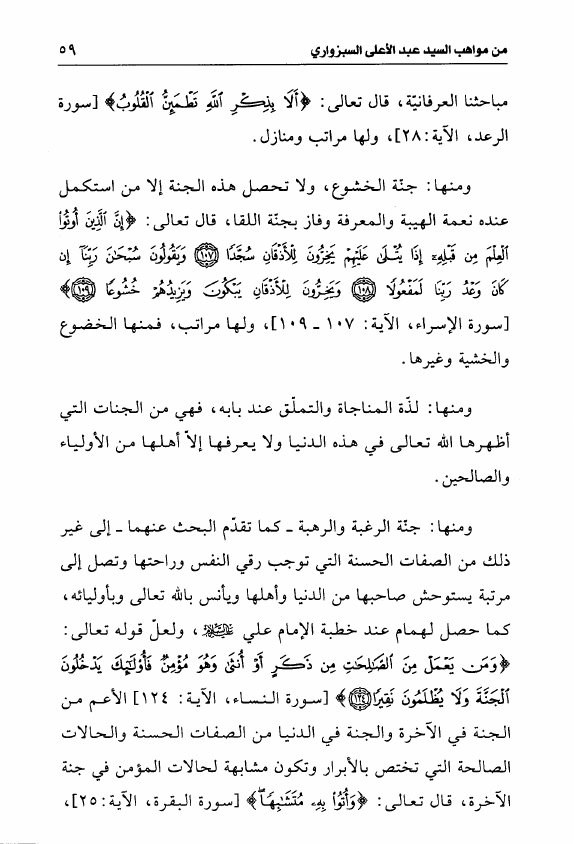 من مواهب السيد عبد الأعلى السبزواري ٥٩
مباحثنا العرفانيّة، قال تعالى: ﴿أَلَا بِذِكْرِ ٱللَّهِ تَطْمَئِنُّ ٱلْقُلُوبُ﴾ [سورة
الرعد، الآية: ٢٨]، ولها مراتب ومنازل.
ومنها: جنّة الخشوع، ولا تحصل هذه الجنة إلا من استكمل
عنده نعمة الهيبة والمعرفة وفاز بجنّة اللقا، قال تعالى: ﴿إِنَّ ٱلَّذِينَ أُوتُوا۟
ٱلْعِلْمَ مِن قَبْلِهِۦٓ إِذَا يُتْلَىٰ عَلَيْهِمْ يَخِرُّونَ لِلْأَذْقَانِ سُجَّدًا ﴿١٠٧﴾ وَيَقُولُونَ سُبْحَٰنَ رَبِّنَآ إِن
كَانَ وَعْدُ رَبِّنَا لَمَفْعُولًا ﴿١٠٨﴾ وَيَخِرُّونَ لِلْأَذْقَانِ يَبْكُونَ وَيَزِيدُهُمْ خُشُوعًا ﴿١٠٩﴾﴾
[سورة الإسراء، الآية: ١٠٧ ـ ١٠٩]، ولها مراتب، فمنها الخضوع
والخشية وغيرها.
ومنها: لذّة المناجاة والتملّق عند بابه، فهي من الجنات التي
أظهرها الله تعالى في هذه الدنيا ولا يعرفها إلاّ أهلها من الأولياء
والصالحين.
ومنها: جنّة الرغبة والرهبة ـ كما تقدّم البحث عنهما ـ إلى غير
ذلك من الصفات الحسنة التي توجب رقي النفس وراحتها وتصل إلى
مرتبة يستوحش صاحبها من الدنيا وأهلها ويأنس بالله تعالى وبأوليائه،
كما حصل لهمام عند خطبة الإمام علي عليه السلام، ولعلّ قوله تعالى:
﴿وَمَن يَعْمَلْ مِنَ ٱلصَّٰلِحَٰتِ مِن ذَكَرٍ أَوْ أُنثَىٰ وَهُوَ مُؤْمِنٌ فَأُو۟لَٰٓئِكَ يَدْخُلُونَ
ٱلْجَنَّةَ وَلَا يُظْلَمُونَ نَقِيرًا ﴿١٢٤﴾﴾ [سورة النساء، الآية: ١٢٤] الأعم من
الجنة في الآخرة والجنة في الدنيا من الصفات الحسنة والحالات
الصالحة التي تختص بالأبرار وتكون مشابهة لحالات المؤمن في جنة
الآخرة، قال تعالى: ﴿وَأُتُوا۟ بِهِۦ مُتَشَٰبِهًا﴾ [سورة البقرة، الآية: ٢٥]،